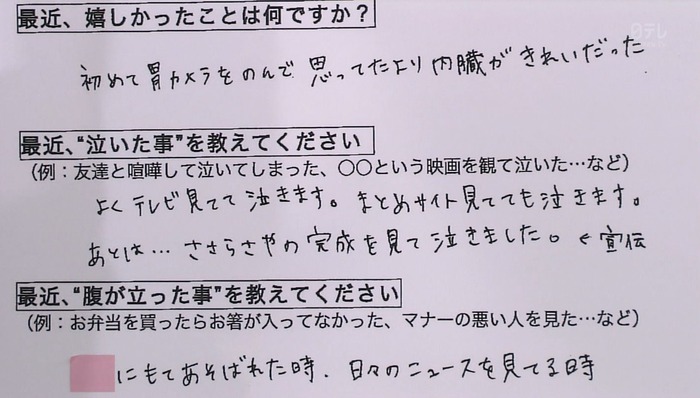 最近、嬉しかったことは何ですか？
日テレ
初めて胃カメラをのんで 思ってたより内臓がきれいだった
最近、“泣いた事”を教えてください
（例：友達と喧嘩して泣いてしまった、〇〇という映画を観て泣いた…など）
よくテレビ見てて泣きます。まとめサイト見てても泣きます。
あとは… ささらさやの完成を見て泣きました。←宣伝
最近、“腹が立った事”を教えてください
（例：お弁当を買ったらお箸が入ってなかった、マナーの悪い人を見た…など）
にもてあそばれた時、日々のニュースを見てる時